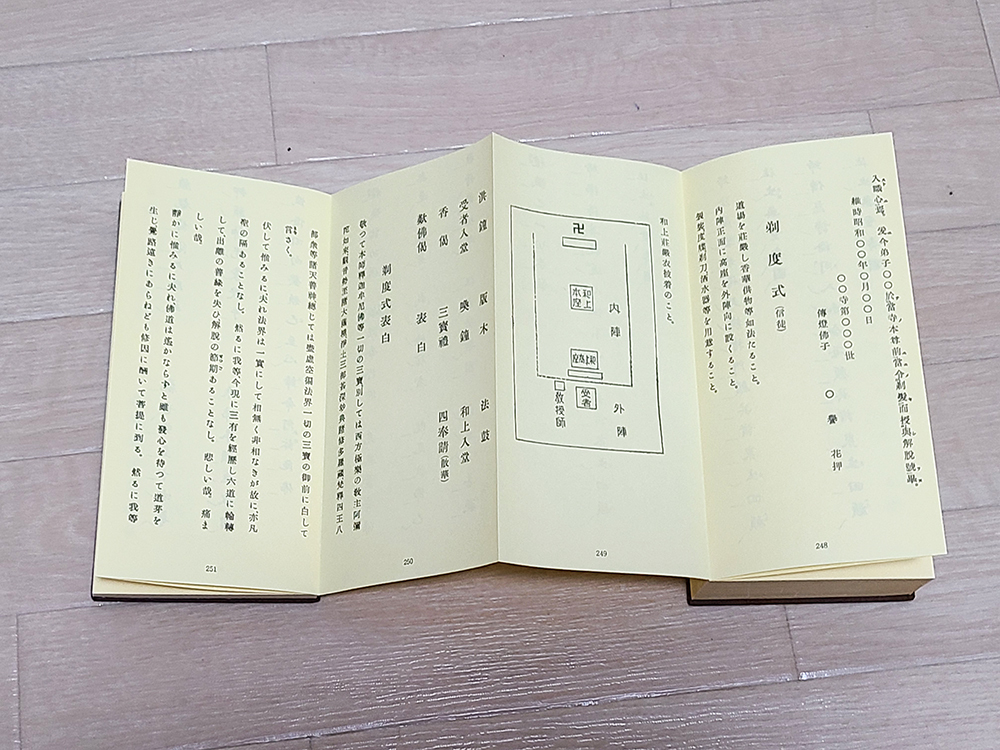 入職心爲、凭今弟子〇〇於當寺本尊前當令剃髮而授與解脱號畢、
維時昭和〇〇年〇月〇〇日
〇〇寺第〇〇〇世
傳燈佛子 〇譽 花押
剃度式(信徒)
道場を莊嚴し香華供物等如法たること。
内陣正面に高座を外陣向に設くること。
袈裟度牒剃刀洒水器等を用意すること。
248
和上莊嚴衣被着のこと。
卍
内陣
和上
本座
和上高座
受者
教授師
外陣
249
洪鐘 版木 法鼓
受者入堂 喚鐘 和上入堂
香偈 三寶禮 四奉請(散華)
歎佛偈 表白
剃度式表白
敬つて本師釋迦牟尼佛等一切の三寶別しては西方極樂の敎主阿彌
陀如來觀音勢至諸大薩埵淨土三部甚深妙典諸修多羅藏梵釋四王八
250
部衆等諸天善神總じては盡虛空徧法界一切の三寶の御前に白して
言さく、
伏して惟みるに夫れ法界は一實にして相無く非相なきが故に亦凡
聖の隔あることなし。然るに我等今現に三有を經歷し六道に輪轉
して出離の善緣を失ひ解脱の節期あることなし。悲しい哉、痛ま
しい哉。
靜かに惟みるに夫れ佛道は遙かならずと雖も發心を待つて道芽を
生じ覺路遠きにあらねども修因に酬いて菩提に到る。然るに我等
251